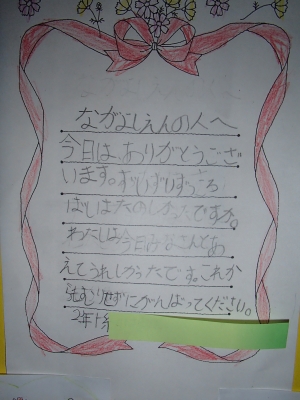 ながよしえんの人へ
今日は、ありがとうござ
います。ずいずいずっころ
ばしはたのしかったですか。
わたしは今日みなさんとあ
えてうれしかったです。これか
らもむりせずにがんばってください。
2年